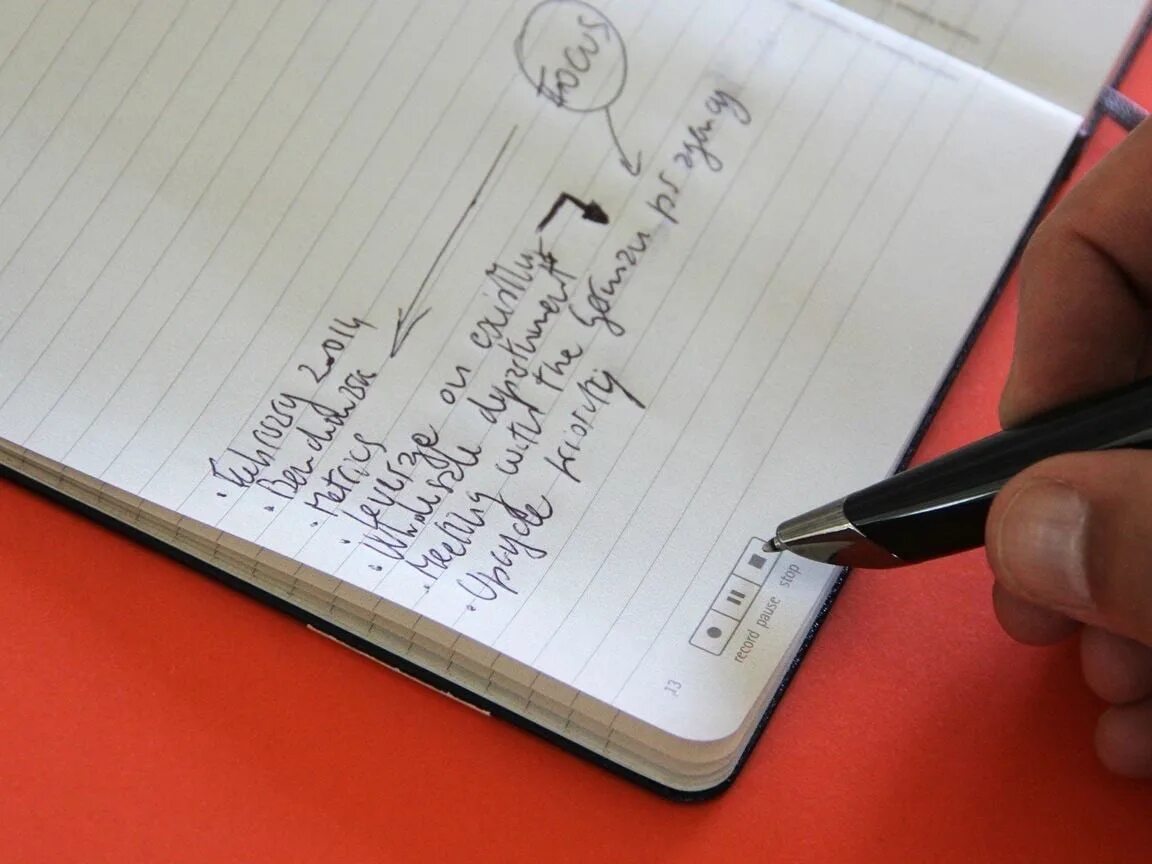 FOCUS
• February 2014
• Benchmark
• Metrics
• Leverage on existing
• Wholesale department
• Meeting with the German pr agency
• Upcycle priority
record pause stop
13